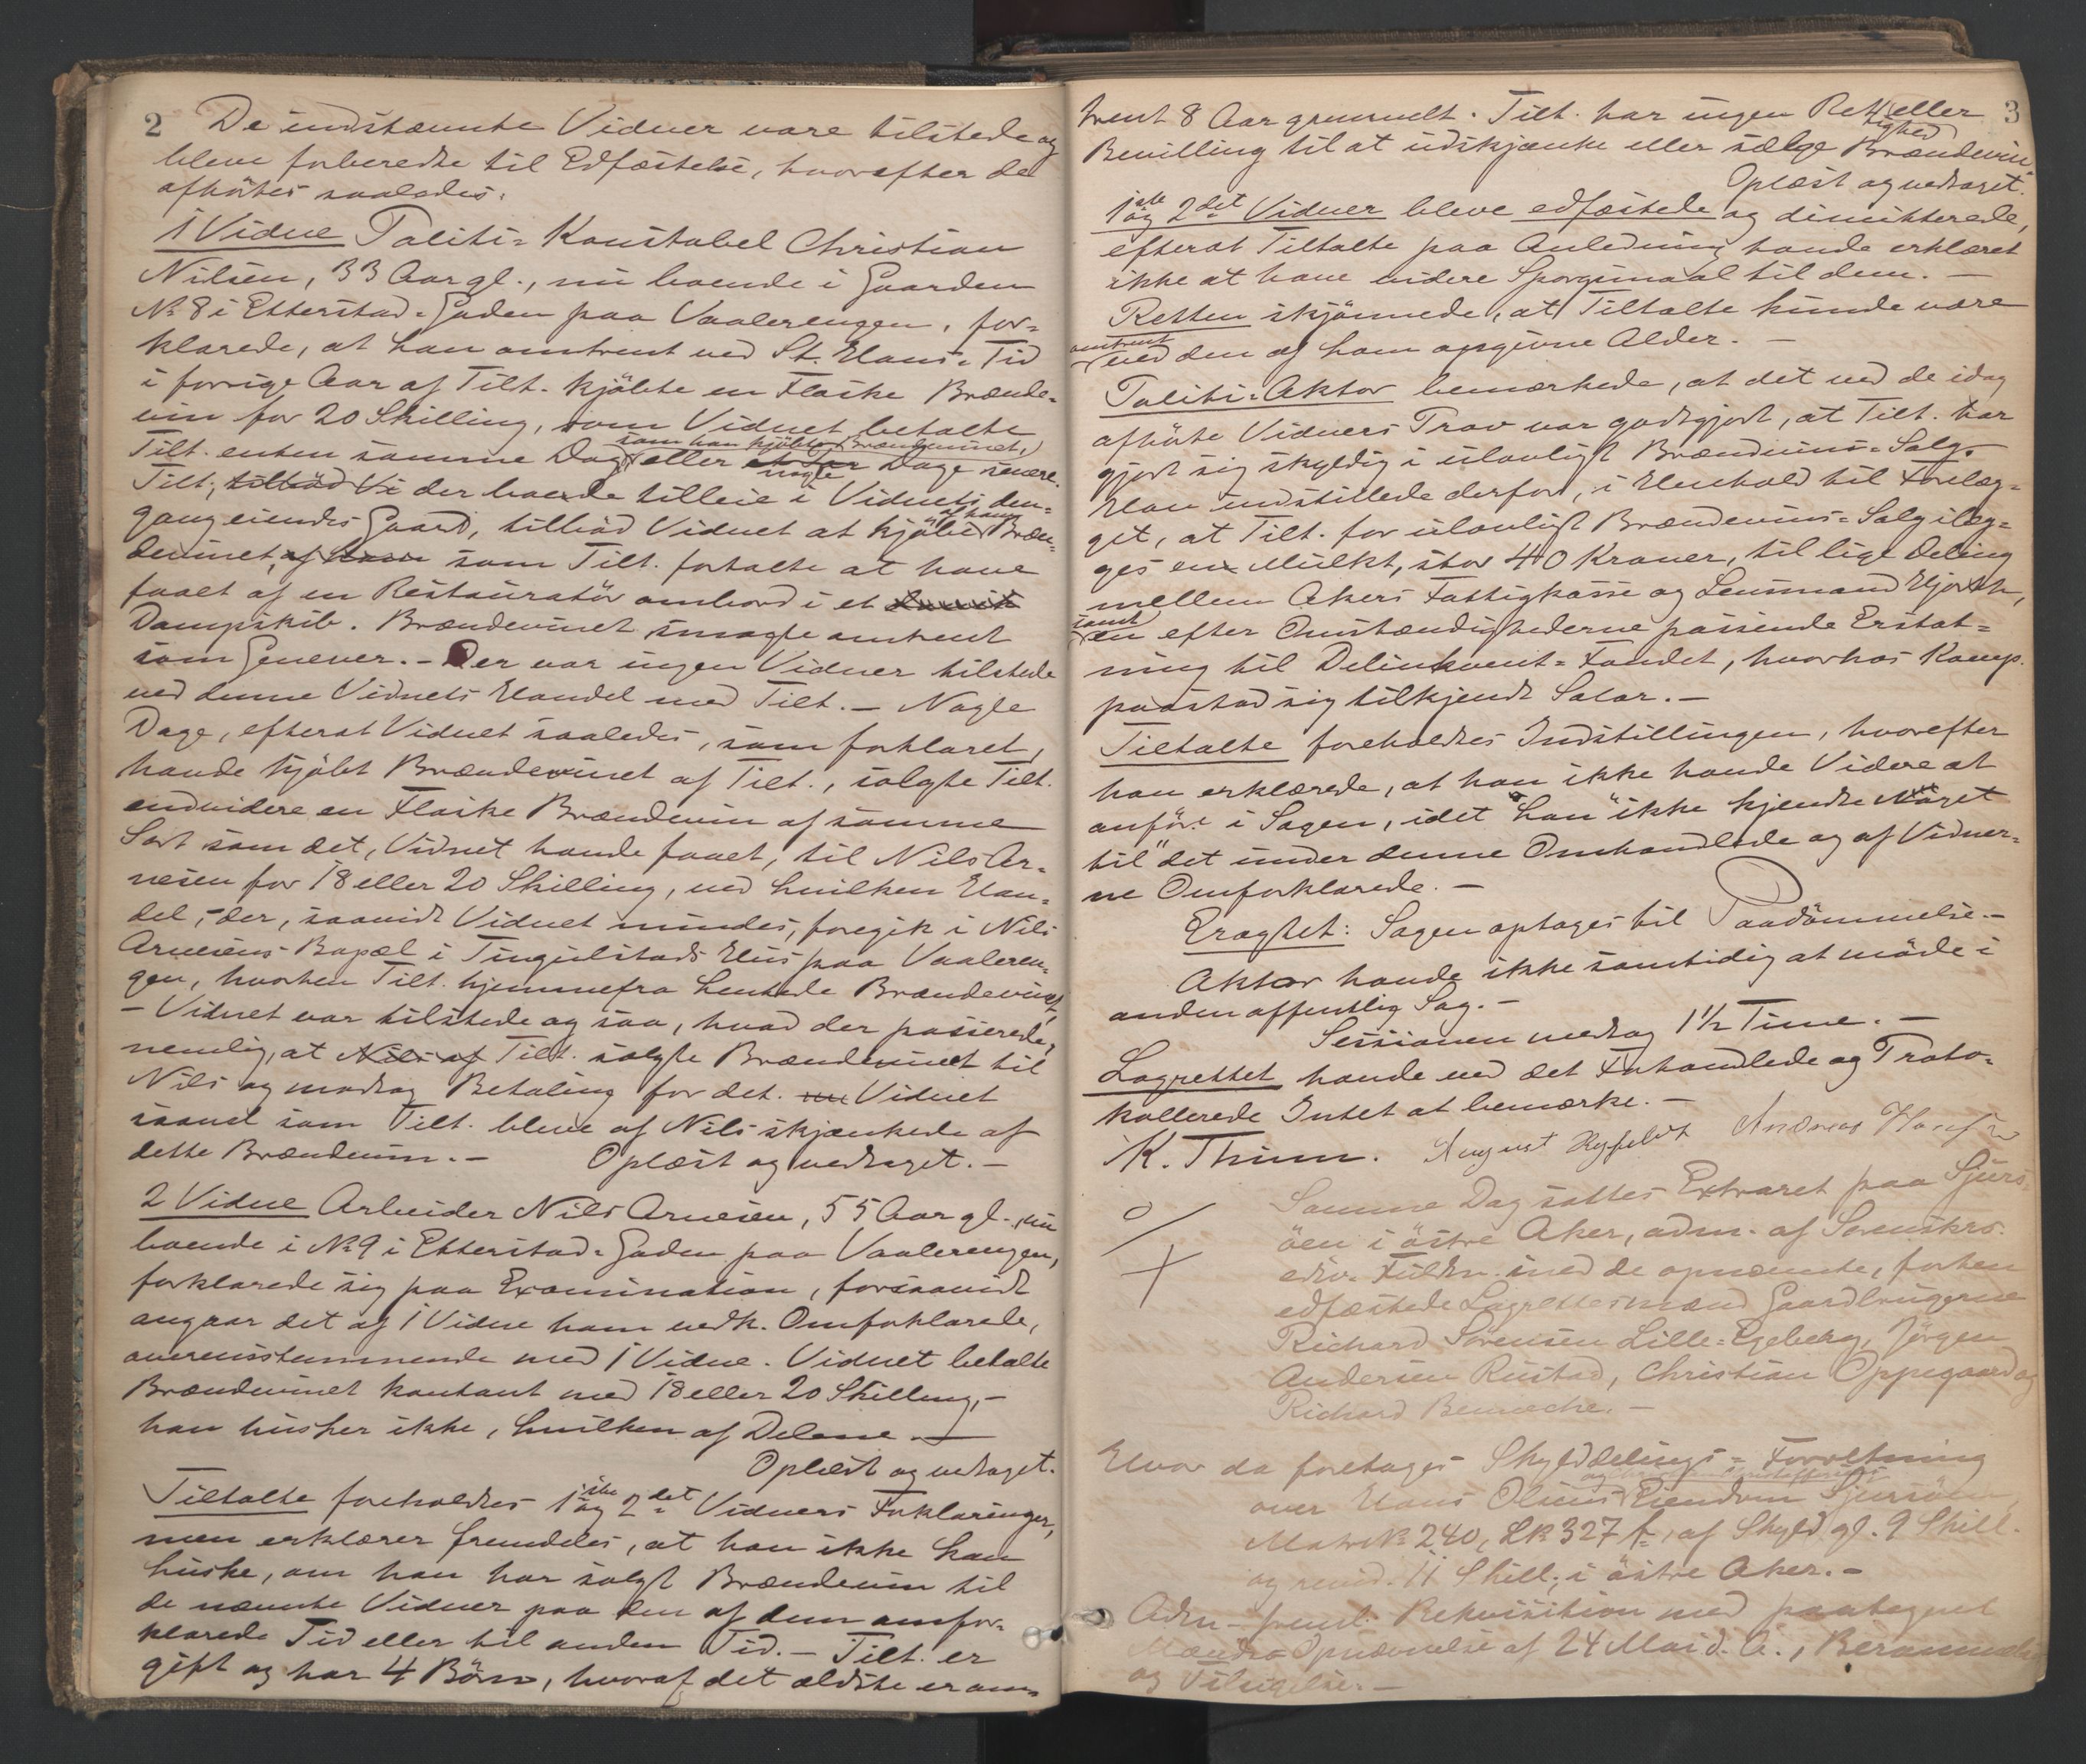 2 De indstævnte Vidner vare tilstede og
bleve forberedte til Edfæstelse, hvorefter de
afhörtes saaledes:
1 Vidne Politi=Konstabel Christian
Nilsen, 33 Aar gl., nu boende i Gaarden
No 8 i Etterstad=Gaden paa Vaalerengen, for=
klarede, at han omtrent ved St. Hans=Tid
i forrige Aar af Tilt. kjöbte en Flaske Brænde=
vin for 20 Skilling, som Vidnet betalte
Tilt. enten samme Dag som han kjöbte Brændevinet, eller et Par nogle Dage senere.
Tilt., tilböd Vi der boede tilleie i Vidnets den=
gang eiendes Gaard, tilböd Vidnet at kjöbe af ham Bræn=
devinet, af ham som Tilt. fortalte at have
faaet af en Restauratör ombord i et
Dampskib. Brændevinet smagte omtrent
som Genever. - Der var ingen Vidner tilstede
ved denne Vidnets Handel med Tilt. - Nogle
Dage, efterat Vidnet saaledes, som forklaret,
havde kjöbt Brændevinet af Tilt., solgte Tilt.
endvidere en Flaske Brændevin af samme
Sort som det, Vidnet havde faaet, til Nils Ar=
nesen for 18 eller 20 Skilling, ved hvilken Han=
del, der, saavidt Vidnet mindes, foregik i Nils
Arnesens Bopæl i Tingulstads Hus paa Vaaleren=
gen, hvorhen Tilt. hjemmefra hentede Brændevinet,
- Vidnet var tilstede og saa, hvad der passerede,
nemlig, at Nils af Tilt. solgte Brændevinet til
Nils og modtog Betaling for det. Vidnet
saavel som Tilt. bleve af Nils skjænkede af
dette Brændevin. - Oplæst og vedtaget. -
2 Vidne Arbeider Nils Arnesen, 55 Aar gl., nu
boende i No 9 i Etterstad=Gaden paa Vaalerengen,
forklarede sig paa Examination, forsaavidt
angaar det af 1 Vidne ham vedk. Omforklarede,
overensstemmende med 1 Vidne. Vidnet betalte
Brændevinet kontant med 18 eller 20 Skilling, -
han husker ikke, hvilken af Delene. -
Oplæst og vedtaget.
Tiltalte foreholdtes 1ste og 2det Vidners Forklaringer,
men erklærer fremdeles, at han ikke kan
huske, om han har solgt Brændevin til
de nævnte Vidner paa den af dem omfor=
klarede Tid eller til anden Tid. - Tilt. er
gift og har 4 Börn, hvoraf det ældste er om=
trent 8 Aar gammelt. Tilt. har ingen Rettighed eller 3
Bevilling til at udskjænke eller sælge Brændevin.
Oplæst og vedtaget.
1ste og 2det Vidner bleve edfæstede og dimitterede,
efterat Tiltalte paa Anledning havde erklæret
ikke at have videre Spörgsmaal til dem. -
Retten skjönnede, at Tiltalte kunde være
omtrent ved den af ham opgivne Alder. -
Politi=Aktor bemærkede, at det ved de idag
afhörte Vidners Prov var godtgjort, at Tilt. har
gjort sig skyldig i ulovligt Brændevins=Salg.
Han indstillede derfor, i Henhold til Forelæg=
get, at Tilt. for ulovligt Brændevins=Salg ilæg=
ges en Mulkt, stor 40 Kroner, til lige Deling
mellem Akers Fattigkasse og Lensmand Hjorth,
samt en efter Omstændighederne passende Erstat=
ning til Delinkvent=Fondet, hvorhos Komp.
paastod sig tilkjendt Salar. -
Tiltalte foreholdtes Indstillingen, hvorefter
han erklærede, at han ikke havde Videre at
anföre i Sagen, idet "han" ikke kjendte Noget
til" det under denne Omhandlede og af Vidner=
ne Omforklarede. -
Eragtet: Sagen optages til Paadömmelse. -
Aktor havde ikke samtidig at möde i
anden offentlig Sag. -
Sessionen medtog 1 1/2 Time. -
Lagrettet havde ved det Forhandlede og Proto=
kollerede Intet at bemærke. -
K. Thun. August Andreas
Samme Dag sattes Extraret paa Sjurs
öen i östre Aker, adm. af Sorenskrs.
edsv. Fuldm. med de opnævnte, forhen
edfæstede Lagrettesmænd Gaardbrugerne
Richard Sörensen Lille=Egeberg, Jörgen
Andersen Rustad, Christian Oppegaard og
Richard Bennecke. -
Hvor da foretages Skylddelings=Forretning
over Hans Olsens Eiendom Sjursöen,
Matr No 240, LNo 327 f, af Skyld gl. 9 Skill.
og revid. 11 Skill., i östre Aker. -
Adm. freml. Rekvisition med paategnet
Mænds=Opnævnelse af 24 Mai d. A., Berammelse
og Tilsigelse. -